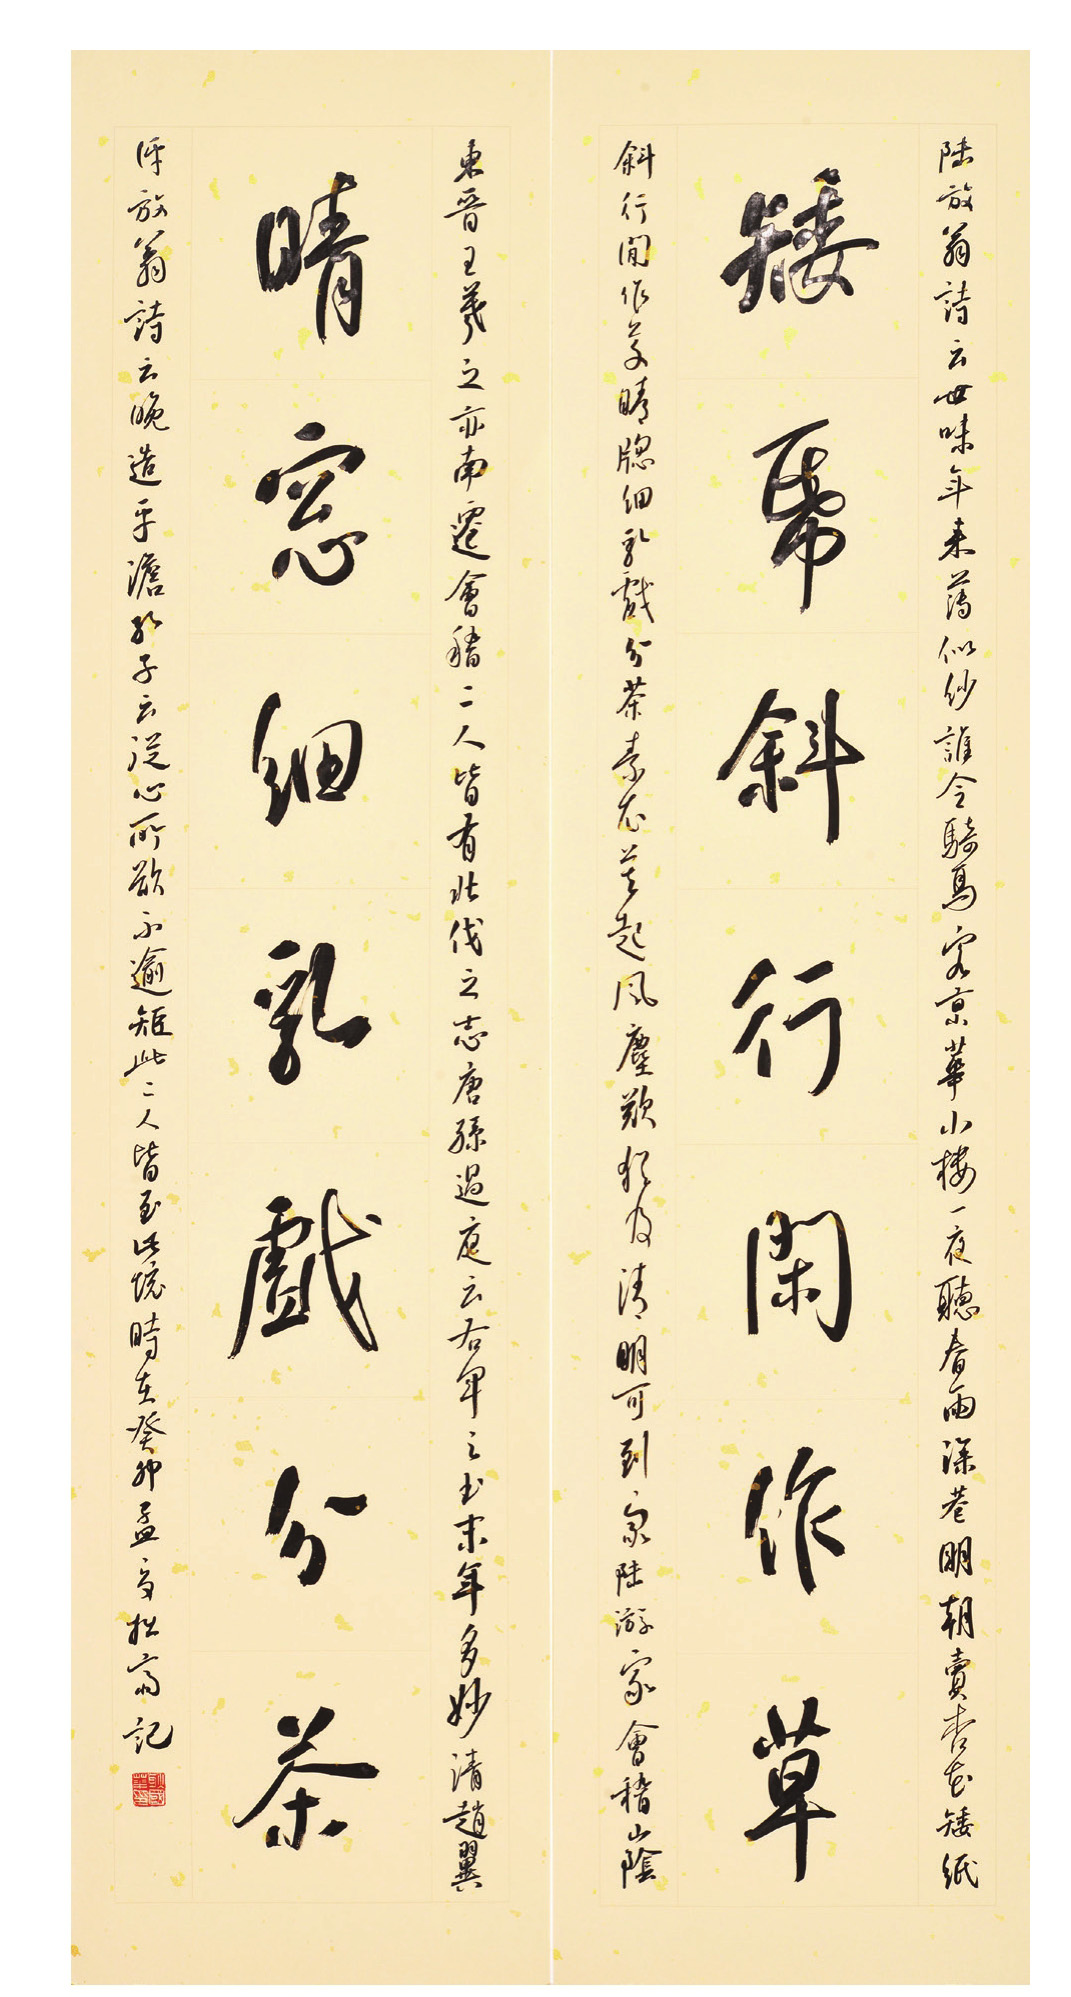 陸放翁詩云世味年来薄似紗誰令騎馬客京華小樓一夜聽春雨深巷明朝賣杏花矮紙
矮帋斜行閑作草
斜行閒作草晴牕細乳戲分茶素衣莫起風塵歎猶及清明可到家陸游家會稽山陰
東晉王羲之亦南遷會稽二人皆有北伐之志唐孫過庭云右軍之書末年多妙清趙翼
晴窓細乳戲分茶
評放翁詩云晚造平澹孔子云從心所欲不逾矩此二人皆至此境時在癸卯孟夏拙齋記